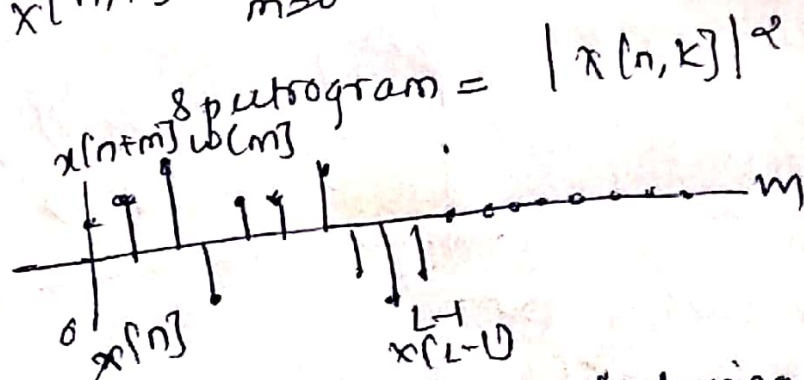 m=0
Spectrogram = |x[n,k]|²
x[n+m] w[m]
m
0
x[n]
L-1
x[L-1]